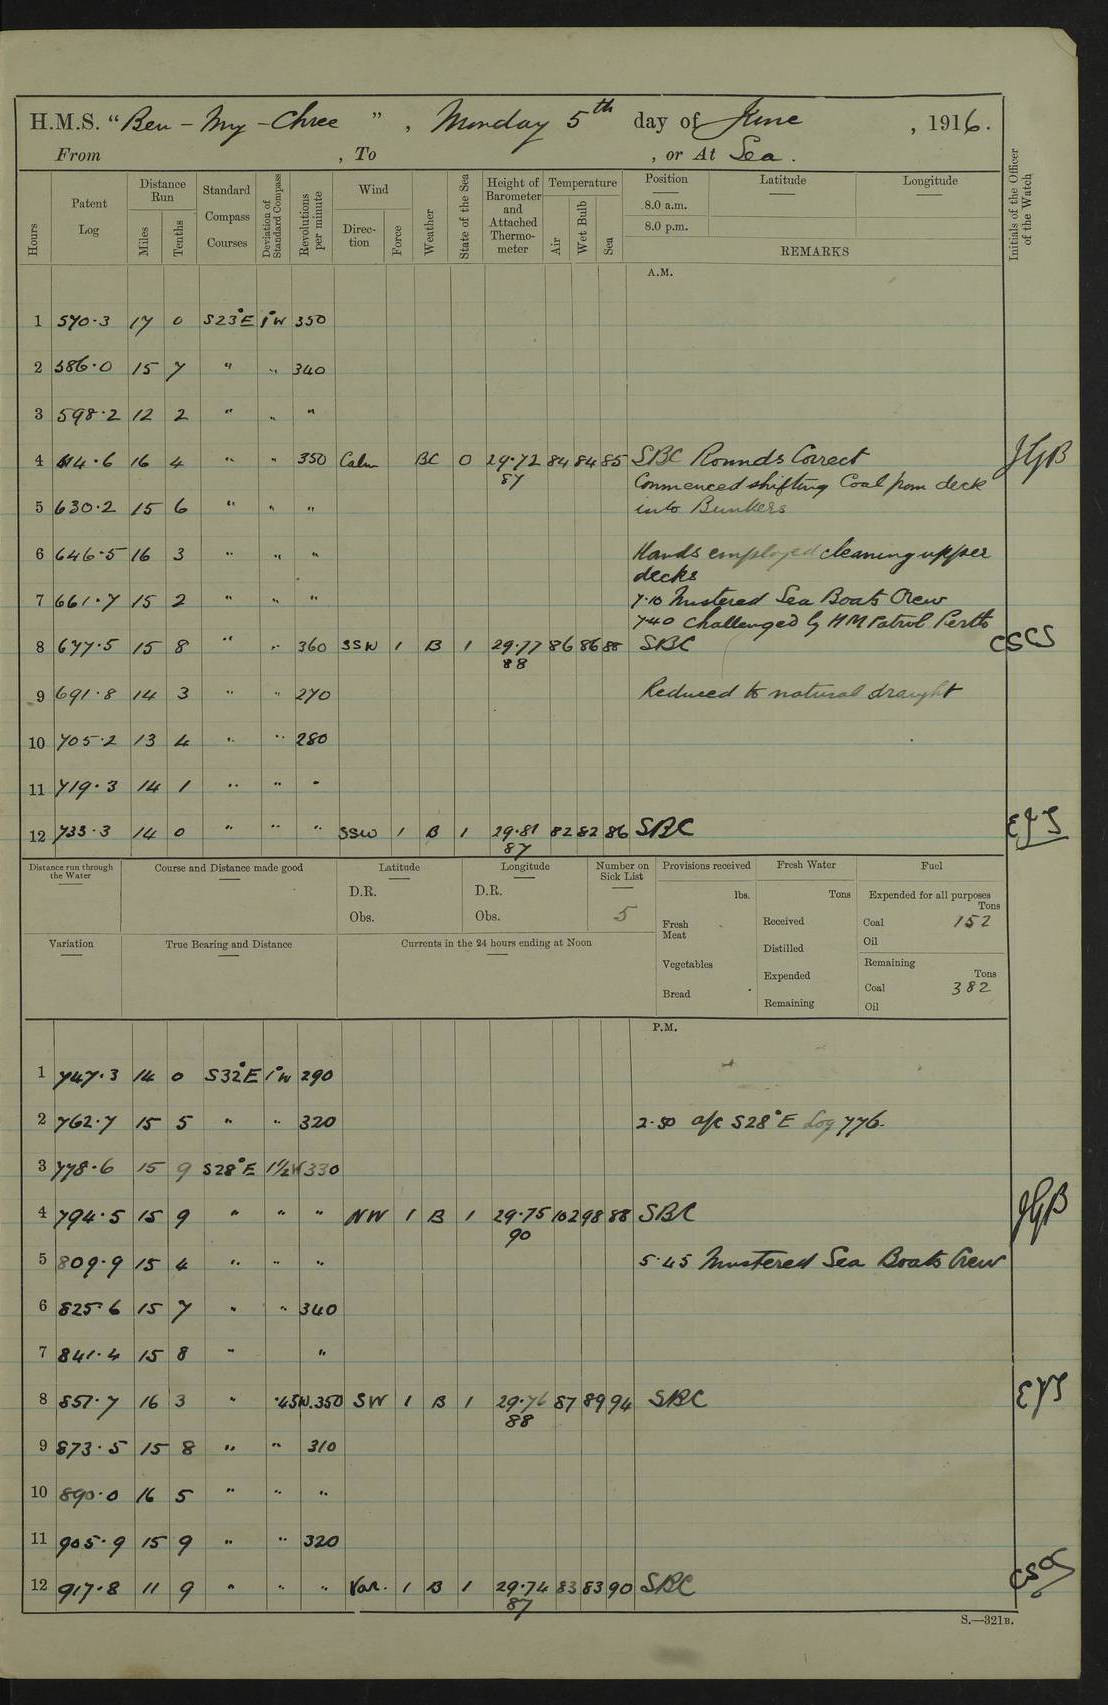 H.M.S. "Ben-My-Chree", Monday 5th day of June, 1916.
From , To , or At Sea.
Hours
Patent Log
Distance Run
Miles
Tenths
Standard Compass Courses
Deviation of Standard Compass
Revolutions per minute
Wind
Direction
Force
Weather
State of the Sea
Height of Barometer and Attached Thermometer
Temperature
Air
Wet Bulb
Sea
Position
8.0 a.m.
8.0 p.m.
Latitude
Longitude
REMARKS
Initials of the Officer of the Watch
A.M.
1 570·3 17 0 S23°E 1°W 350
2 586·0 15 7 " " 340
3 598·2 12 2 " " "
4 614·6 16 4 " " 350 Calm BC 0 29·72 84 84 85 SBC Rounds Correct JGB
87 Commenced shifting Coal from deck
5 630·2 15 6 " " " into Bunkers
6 646·5 16 3 " " " Hands employed cleaning upper
decks
7 661·7 15 2 " " " 7·10 Mustered Sea Boats Crew
7·40 Challenged by HM Patrol Perth
8 677·5 15 8 " " 360 SSW 1 B 1 29·77 86 86 88 SBC CSCS
88
9 691·8 14 3 " " 270 Reduced to natural draught
10 705·2 13 4 " " 280
11 719·3 14 1 " " "
12 733·3 14 0 " " " SSW 1 B 1 29·81 82 82 86 SBC
87
Distance run through the Water
Course and Distance made good
Latitude
D.R.
Obs.
Longitude
D.R.
Obs.
Number on Sick List
5
Provisions received
lbs.
Fresh Meat
Vegetables
Bread
Fresh Water
Tons
Received
Distilled
Expended
Remaining
Fuel
Expended for all purposes
Tons
Coal 152
Oil
Remaining
Tons
Coal 382
Oil
Variation
True Bearing and Distance
Currents in the 24 hours ending at Noon
P.M.
1 747·3 14 0 S32°E 1°W 290
2 762·7 15 5 " " 320 2·50 a/c S28°E Log 776.
3 778·6 15 9 S28°E 1½W 330
4 794·5 15 9 " " " NW 1 B 1 29·75 102 98 88 SBC JGB
90
5 809·9 15 4 " " " 5·45 Mustered Sea Boats Crew
6 825·6 15 7 " " 340
7 841·4 15 8 " "
8 857·7 16 3 " ·45W. 350 SW 1 B 1 29·76 87 89 94 SBC
88
9 873·5 15 8 " " 310
10 890·0 16 5 " " "
11 905·9 15 9 " " 320
12 917·8 11 9 " " " Var. 1 B 1 29·74 83 83 90 SBC CSCS
87
S.—321B.